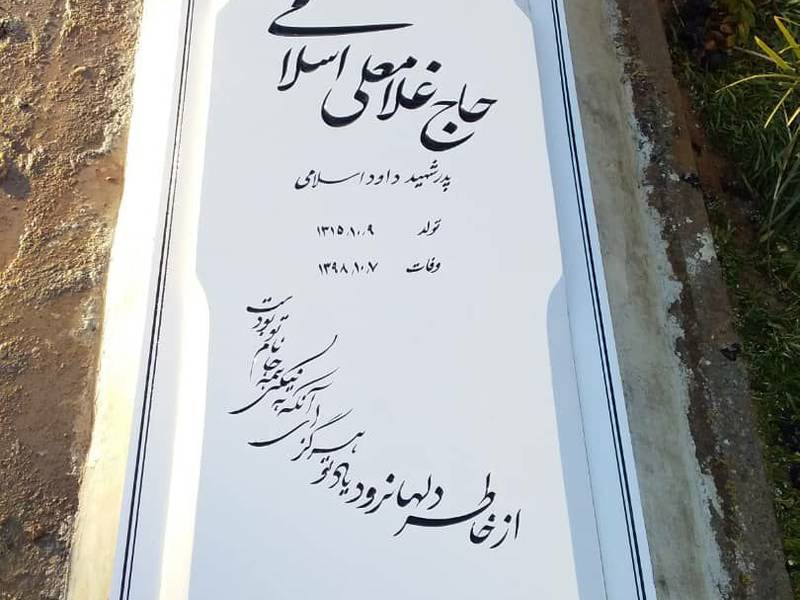 حاج غلامعلی اسلامی
پدر شهید داود اسلامی
تولد ۱۳۱۵/۱۰/۹
وفات ۱۳۹۸/۱۰/۷
از خاطر دلها نرود یاد تو هرگز
ای آنکه به نیکی همه جا نام تو بودست